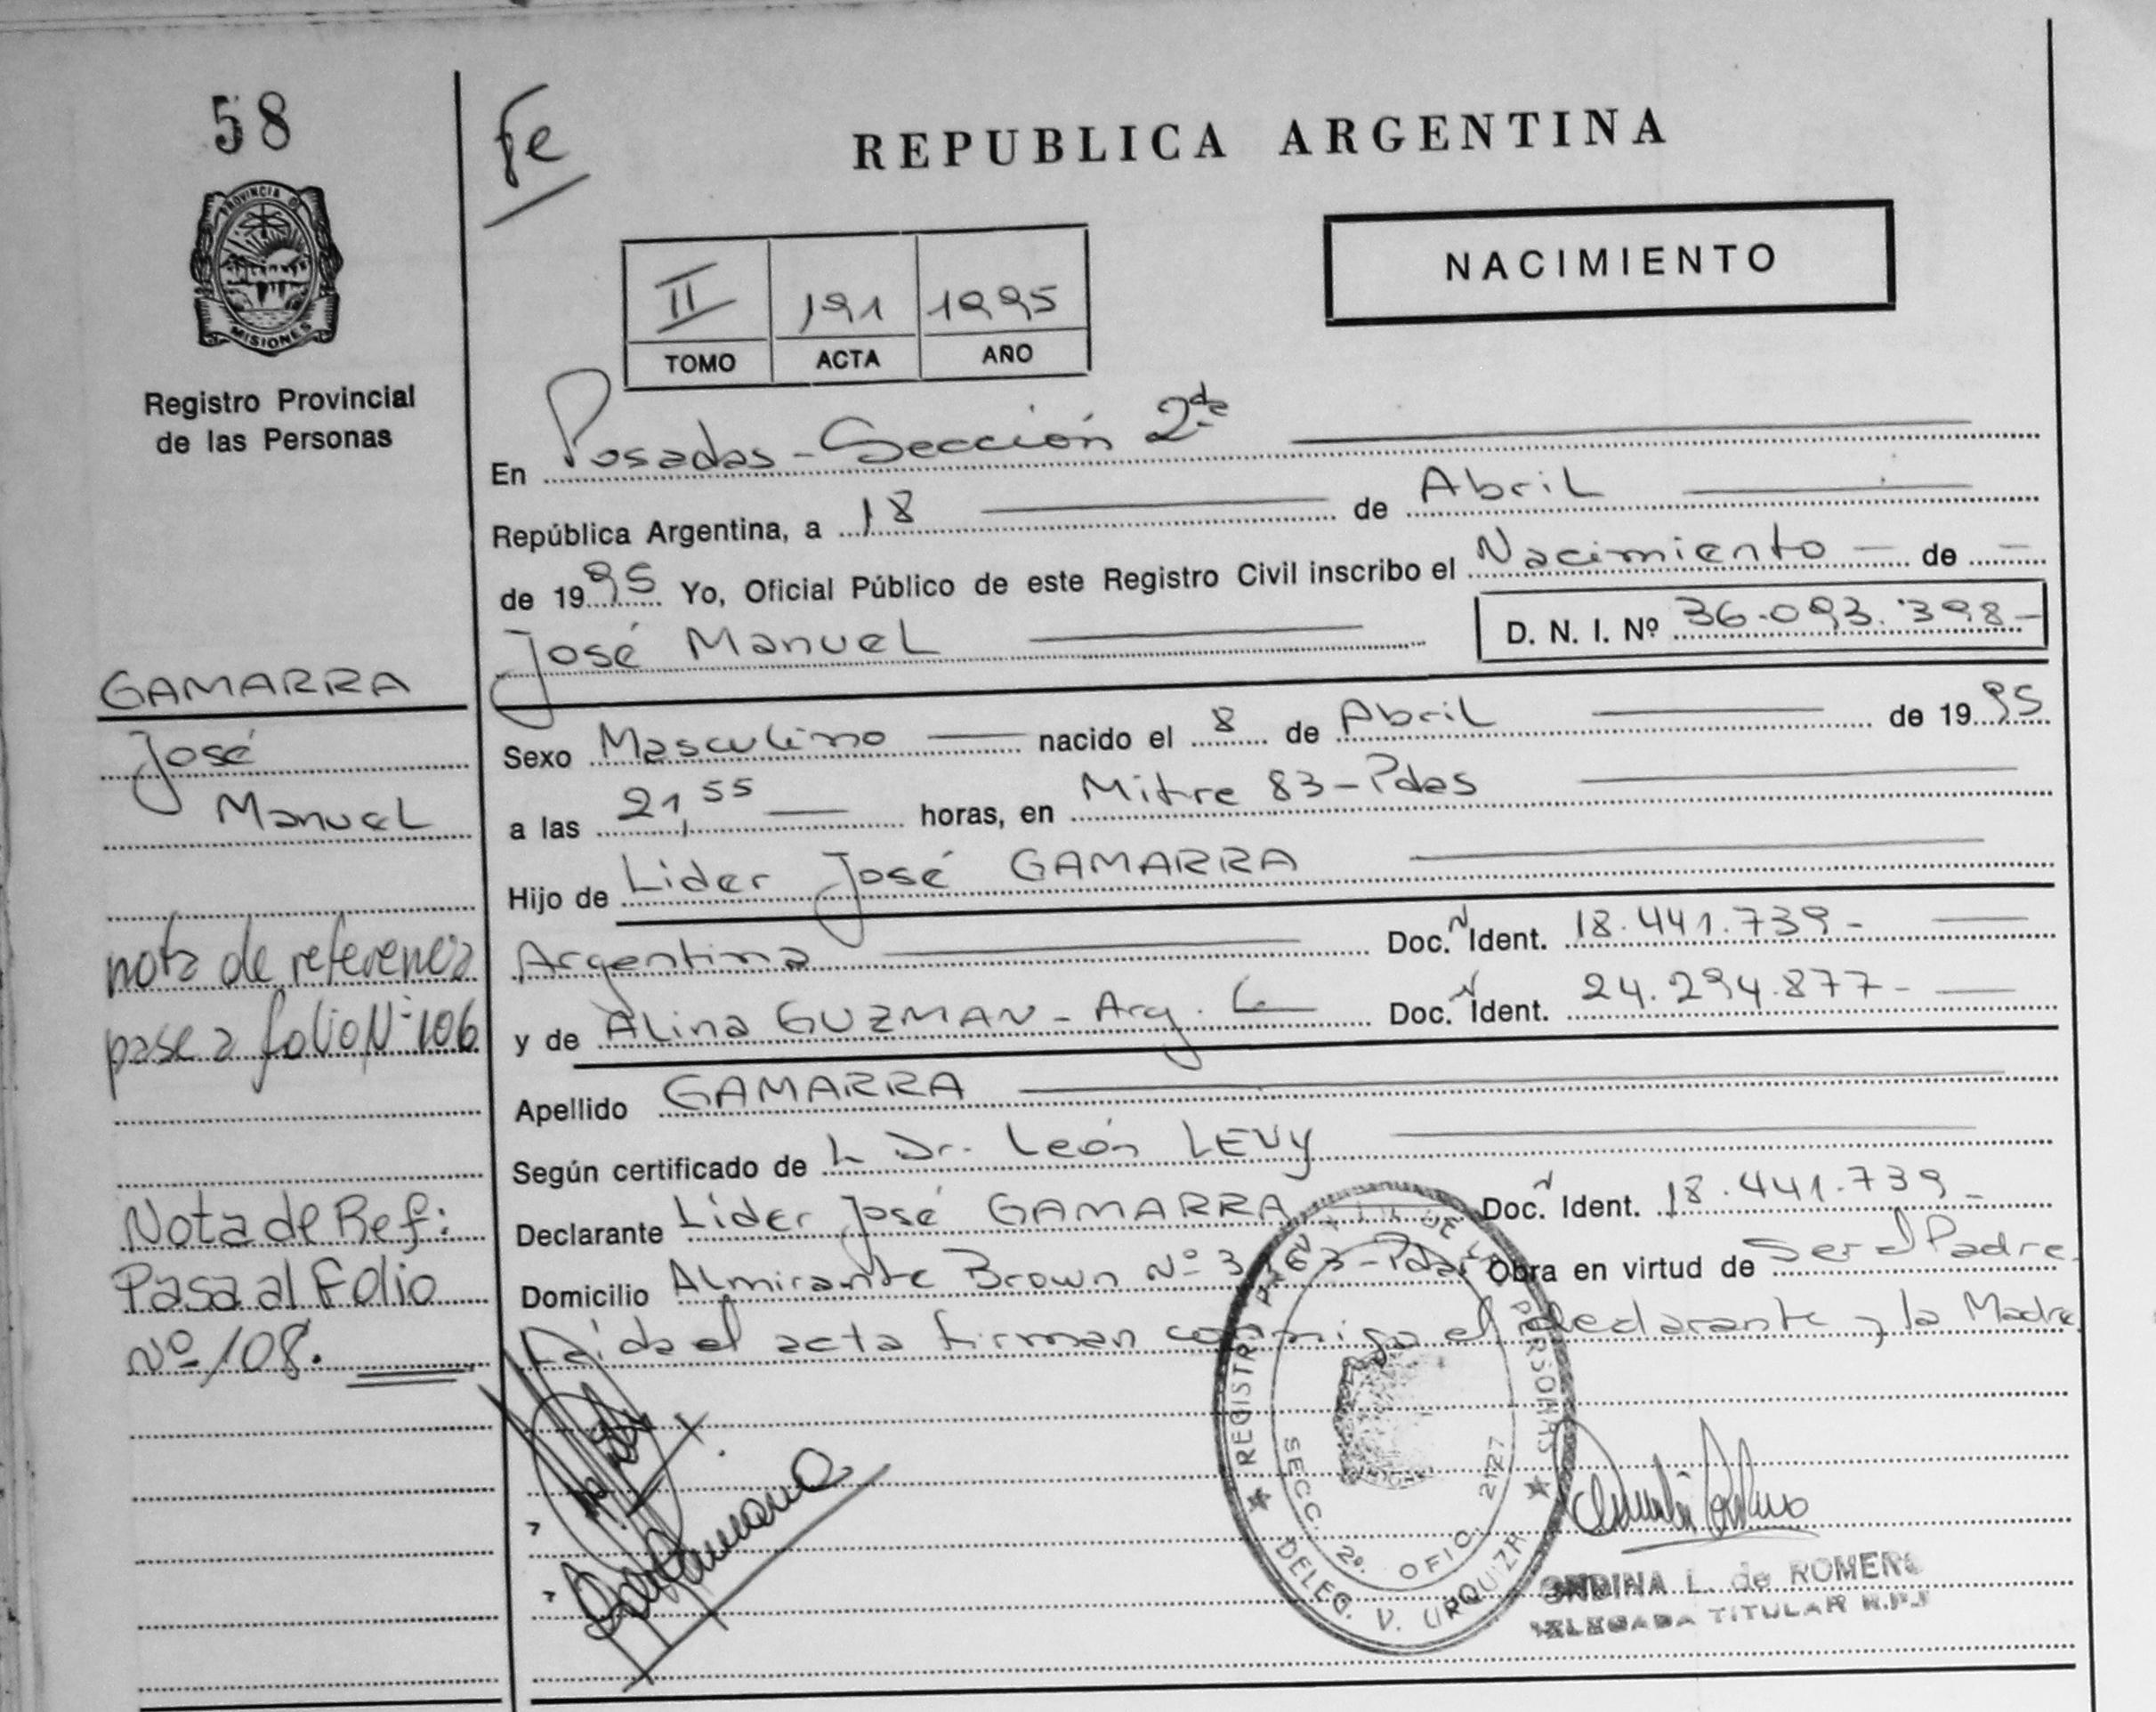 58
PROVINCIA DE
MISIONES
Registro Provincial
de las Personas
GAMARRA
José
Manuel
nota de referencia
pase a folio Nº 106
Nota de Ref:
Pasa al Folio
Nº 108.
Fe
REPUBLICA ARGENTINA
NACIMIENTO
II 191 1995
TOMO ACTA AÑO
En Posadas - Sección 2da
República Argentina, a 18 de Abril
de 1995 Yo, Oficial Público de este Registro Civil inscribo el Nacimiento — de —
José Manuel D. N. I. Nº 36.093.398-
Sexo Masculino nacido el 8 de Abril de 1995
a las 21,55 horas, en Mitre 83 - Pdas
Hijo de Lider José GAMARRA
Argentina Doc. N Ident. 18.441.739-
y de Alina GUZMAN - Arg. Doc. N Ident. 24.294.877-
Apellido GAMARRA
Según certificado de L Dr. León LEVY
Declarante Lider José GAMARRA Doc. N Ident. 18.441.739-
Domicilio Almirante Brown Nº 3163 - Pdas Obra en virtud de Ser el Padre.
Leída el acta firman conmigo el declarante y la Madre
REGISTRO DE LAS PERSONAS
SECC. 2º. OFIC. 2127
DELEG. V. URQUIZA
ONDINA L. de ROMERO
DELEGADA TITULAR R.P.P